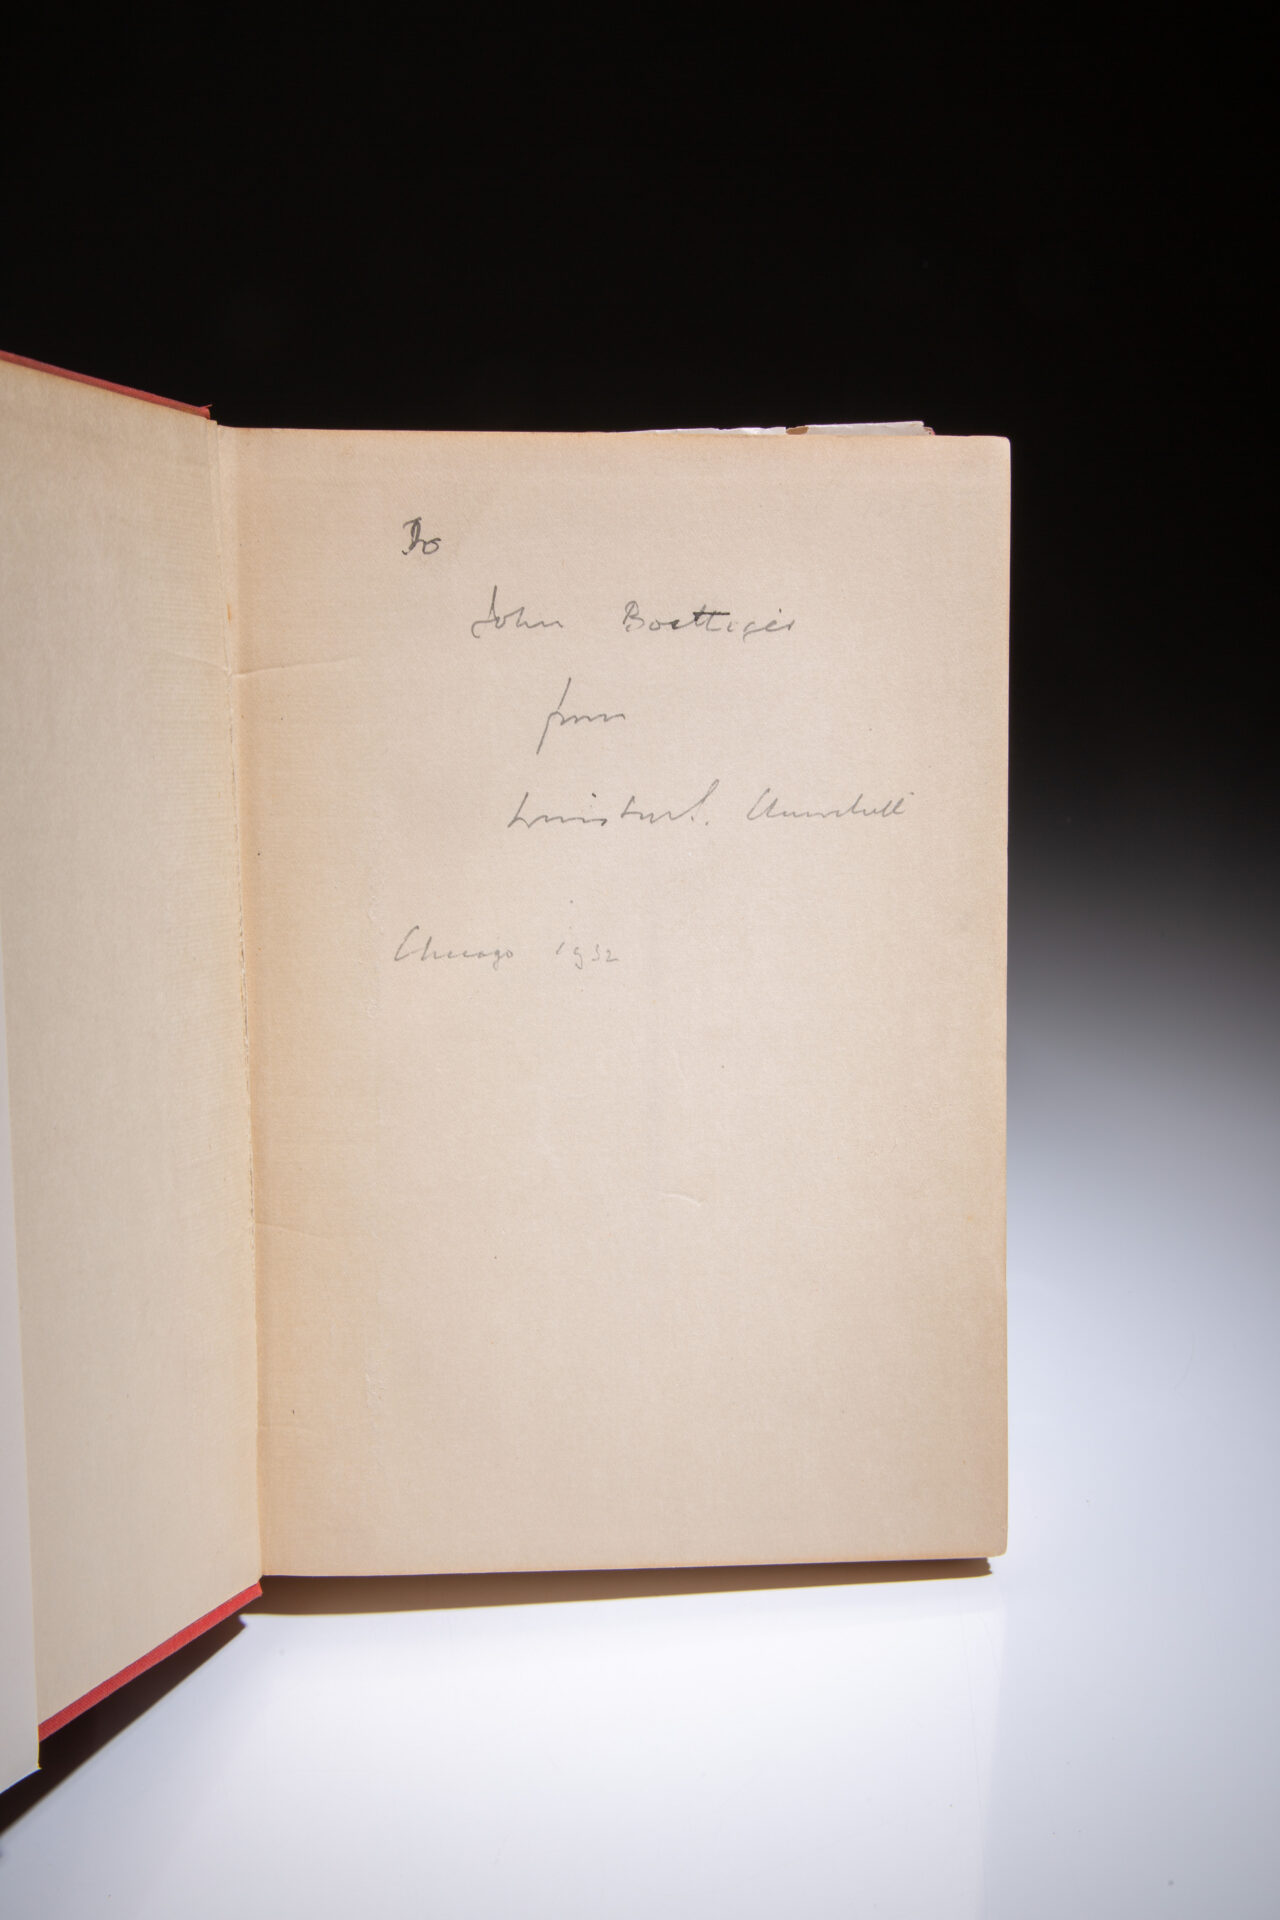 To
John Boettiger
from
Winston S. Churchill
Chicago 1932